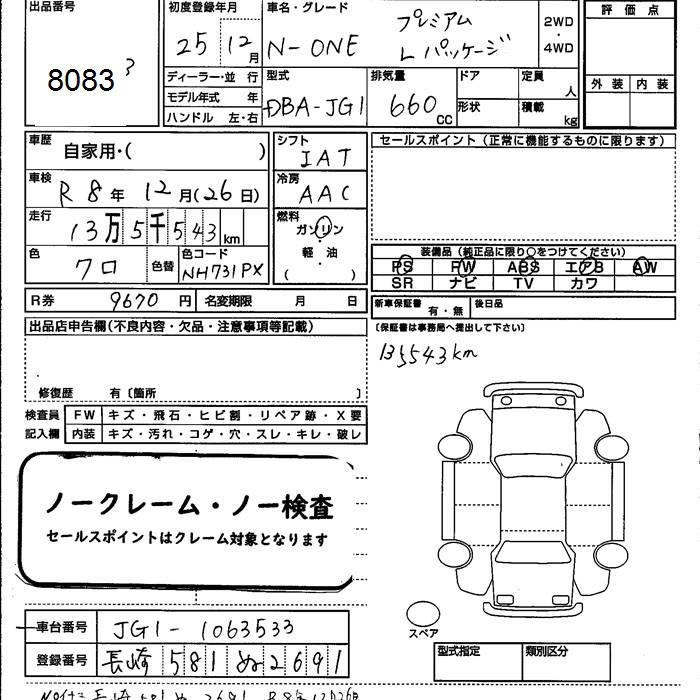 出品番号 初度登録年月 車名・グレード 評価点
8083 3
25 12月
N-ONE プレミアム
Lパッケージ
2WD・4WD
外装 内装
ディーラー・並行 型式 排気量 ドア 定員 人
モデル年式 年 DBA-JG1 660CC 形状 積載 kg
ハンドル 左・右
車歴 自家用・( ) シフト IAT セールスポイント(正常に機能するものに限ります)
車検 R8年12月(26日) 冷房 AAC
走行 13万5千543km 燃料 ガソリン・軽・油 ( )
色 クロ 色替 色コード NH731PX
装備品(純正品に限り○をつけてください)
PS PW ABS エアB AW
SR ナビ TV カワ
R券 9670円 名変期限 月 日
新車保証書 有・無 後日品
出品店申告欄(不良内容・欠品・注意事項等記載)
(保証書は事務局へ提出して下さい)
135543km
修復歴 有〔箇所 〕
検査員記入欄 FW キズ・飛石・ヒビ割・リペア跡・X要
内装 キズ・汚れ・コゲ・穴・スレ・キレ・破レ
ノークレーム・ノー検査
セールスポイントはクレーム対象となります
車台番号 JG1-1063533
スペア
登録番号 長崎 581 ぬ 2691
型式指定 類別区分